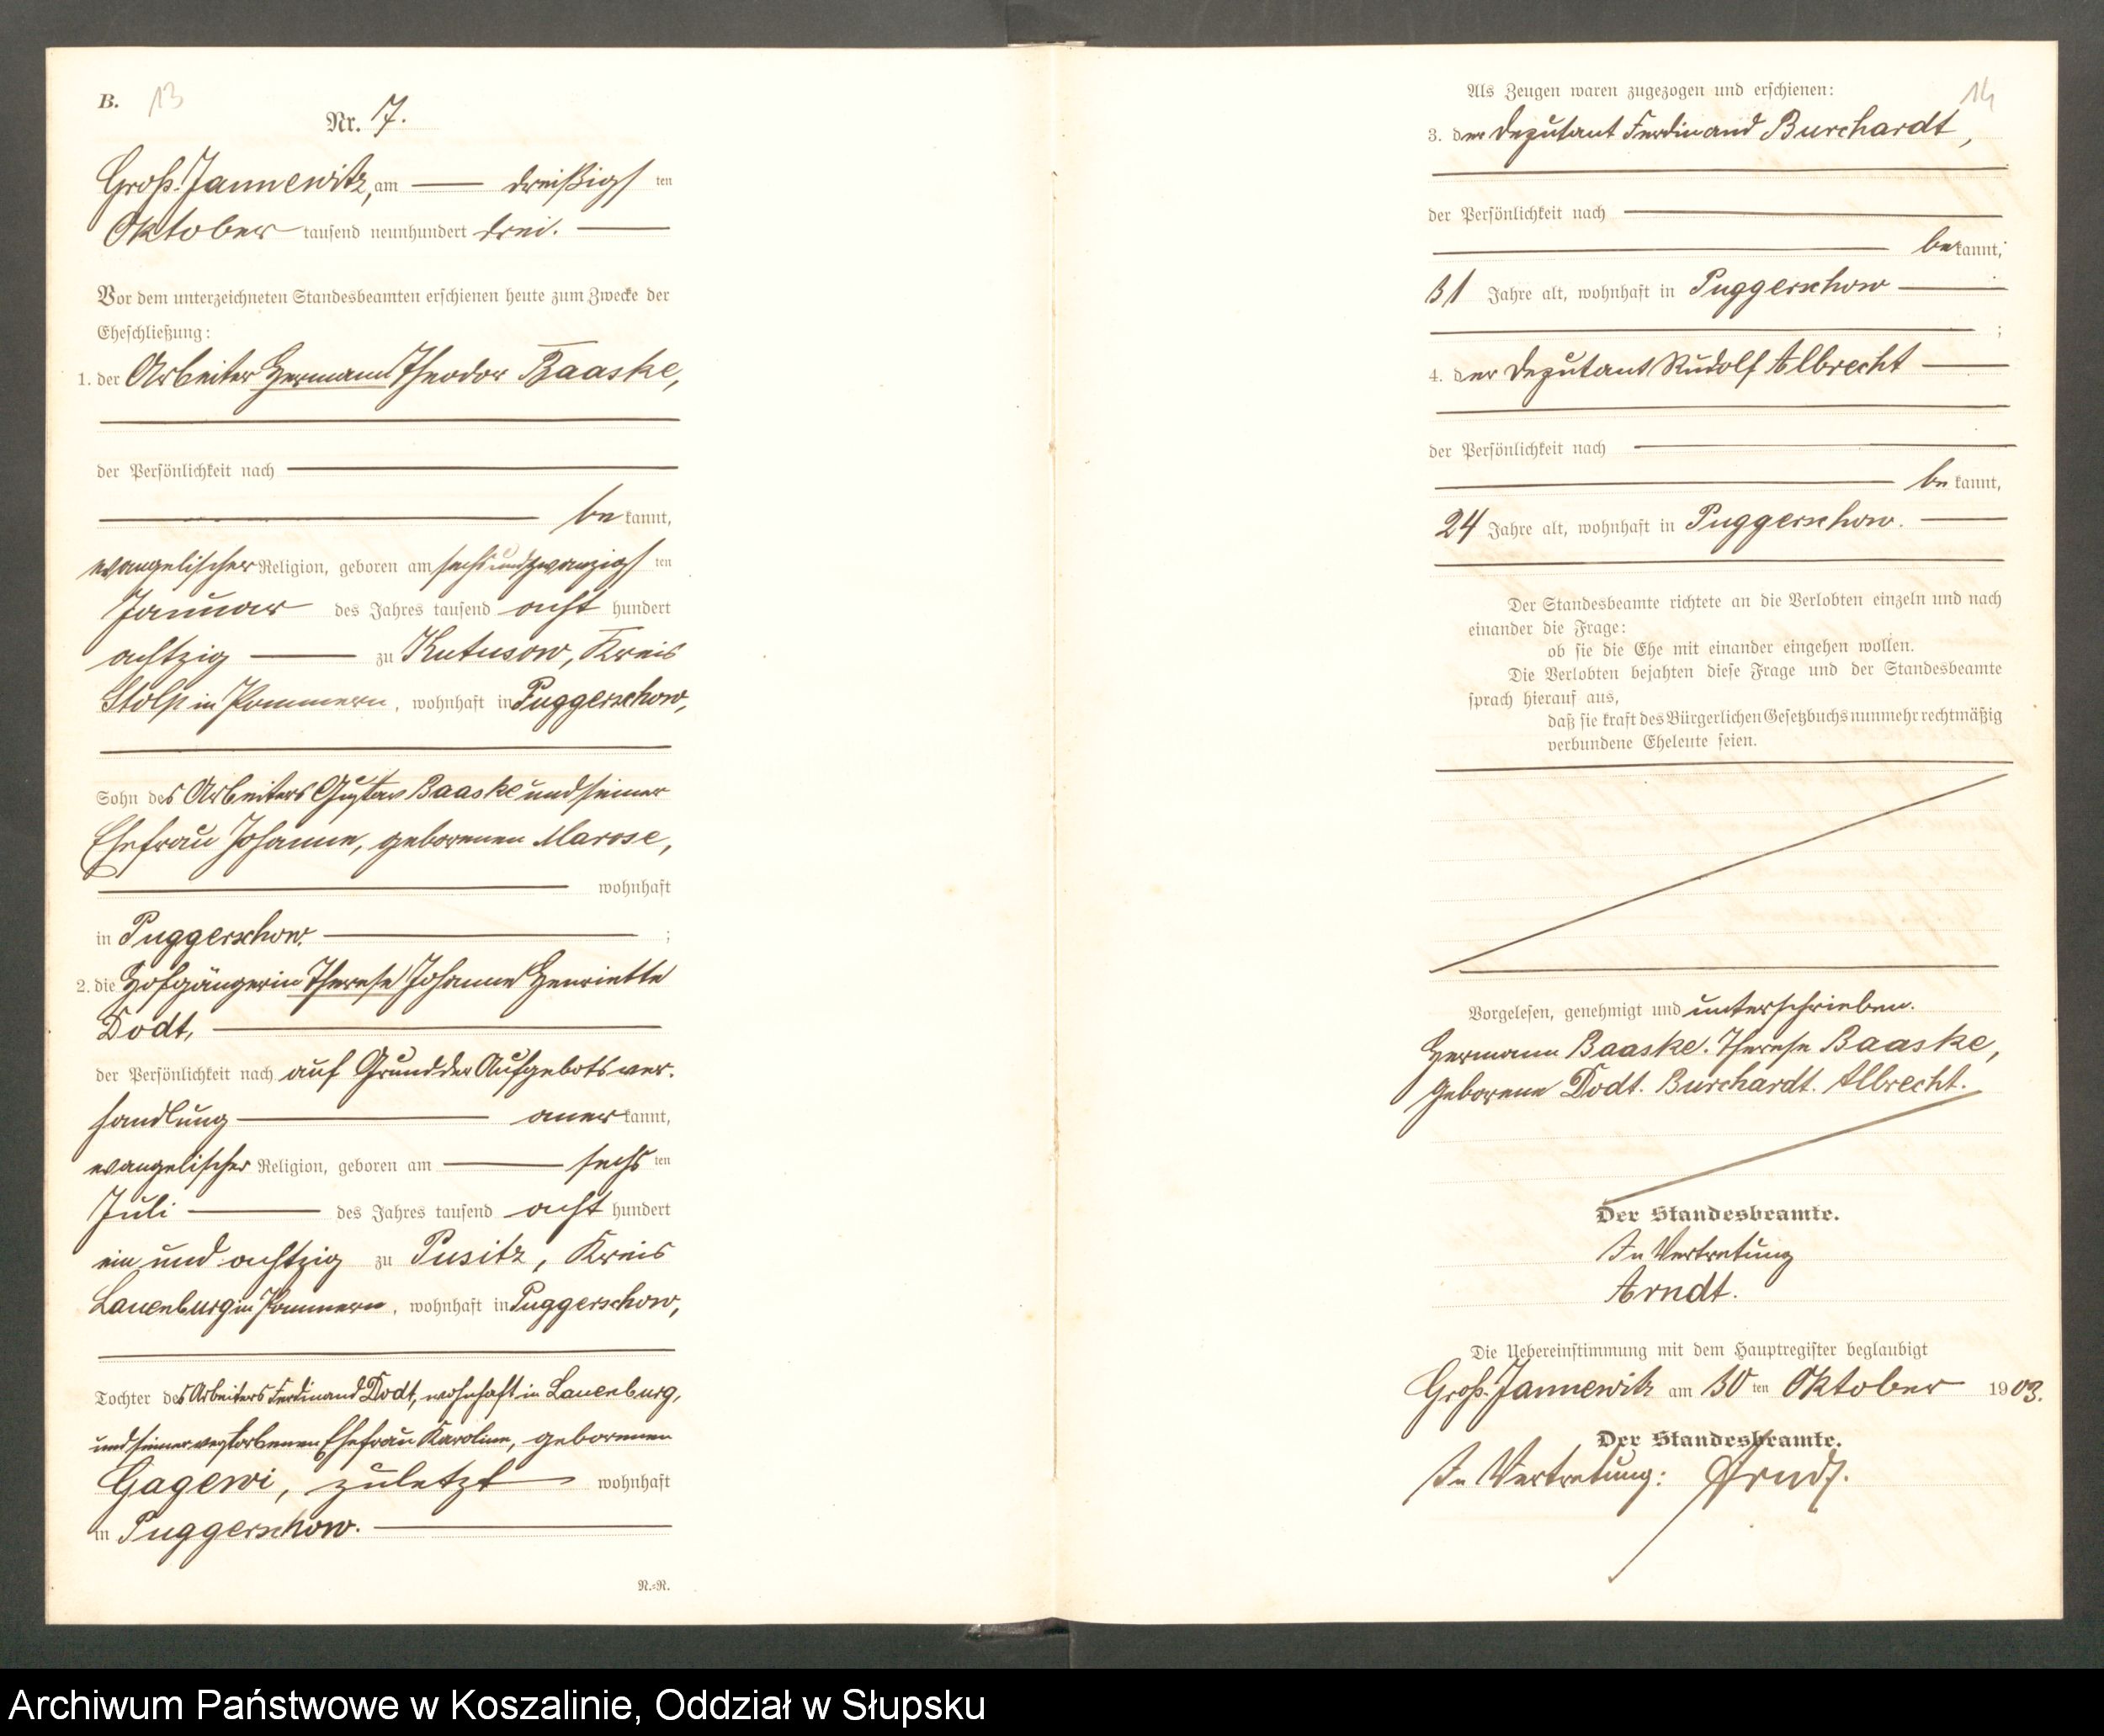 B. 13
Nr. 7.
Groß-Jannewitz, am dreißigsten
Oktober tausend neunhundert drei.
Vor dem unterzeichneten Standesbeamten erschienen heute zum Zwecke der
Eheschließung:
1. der Arbeiter Hermann Theodor Baaske,
der Persönlichkeit nach
bekannt,
evangelischer Religion, geboren am sechsundzwanzigsten
Januar des Jahres tausend acht hundert
achtzig zu Kutusow, Kreis
Stolp in Pommern, wohnhaft in Puggerschow,
Sohn des Arbeiters Gustav Baaske und seiner
Ehefrau Johanne, geborenen Marose,
wohnhaft
in Puggerschow.;
2. die Hofgängerin Therese Johanne Henriette
Dodt,
der Persönlichkeit nach auf Grund der Aufgebotsver-
handlung anerkannt,
evangelischer Religion, geboren am sechsten
Juli des Jahres tausend acht hundert
ein und achtzig zu Pusitz, Kreis
Lauenburg in Pommern, wohnhaft in Puggerschow,
Tochter des Arbeiters Ferdinand Dodt, wohnhaft in Lauenburg,
und seiner verstorbenen Ehefrau Karoline, geborenen
Gagewi, zuletzt wohnhaft
in Puggerschow.
N.=N.
14
Als Zeugen waren zugezogen und erschienen:
3. der Deputant Ferdinand Burchardt,
der Persönlichkeit nach
bekannt,
31 Jahre alt, wohnhaft in Puggerschow
;
4. der Deputant Rudolf Albrecht
der Persönlichkeit nach
bekannt,
24 Jahre alt, wohnhaft in Puggerschow.
Der Standesbeamte richtete an die Verlobten einzeln und nach
einander die Frage:
ob sie die Ehe mit einander eingehen wollen.
Die Verlobten bejahten diese Frage und der Standesbeamte
sprach hierauf aus,
daß sie kraft des Bürgerlichen Gesetzbuchs nunmehr rechtmäßig
verbundene Eheleute seien.
Vorgelesen, genehmigt und unterschrieben.
Hermann Baaske. Therese Baaske,
geborene Dodt. Burchardt. Albrecht.
Der Standesbeamte.
In Vertretung
Arndt.
Die Uebereinstimmung mit dem Hauptregister beglaubigt
Groß-Jannewitz am 30ten Oktober 1903.
Der Standesbeamte.
In Vertretung: Arndt.
Archiwum Państwowe w Koszalinie, Oddział w Słupsku